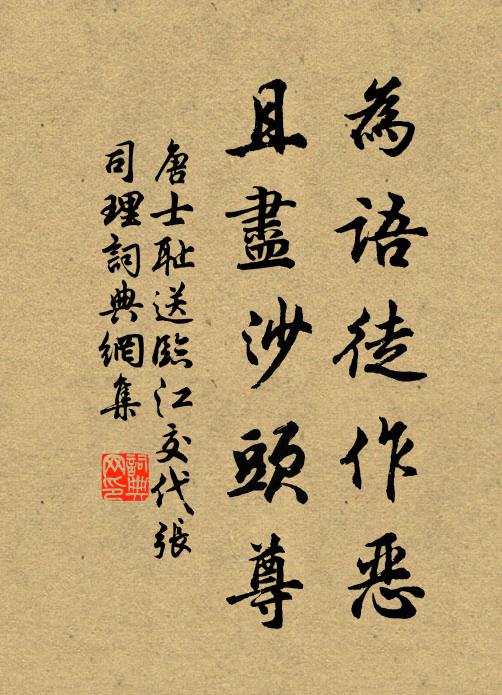 為語徒作惡
且盡沙頭尊
唐士恥送臨江交代張
司理詞典網集
詞典
网印